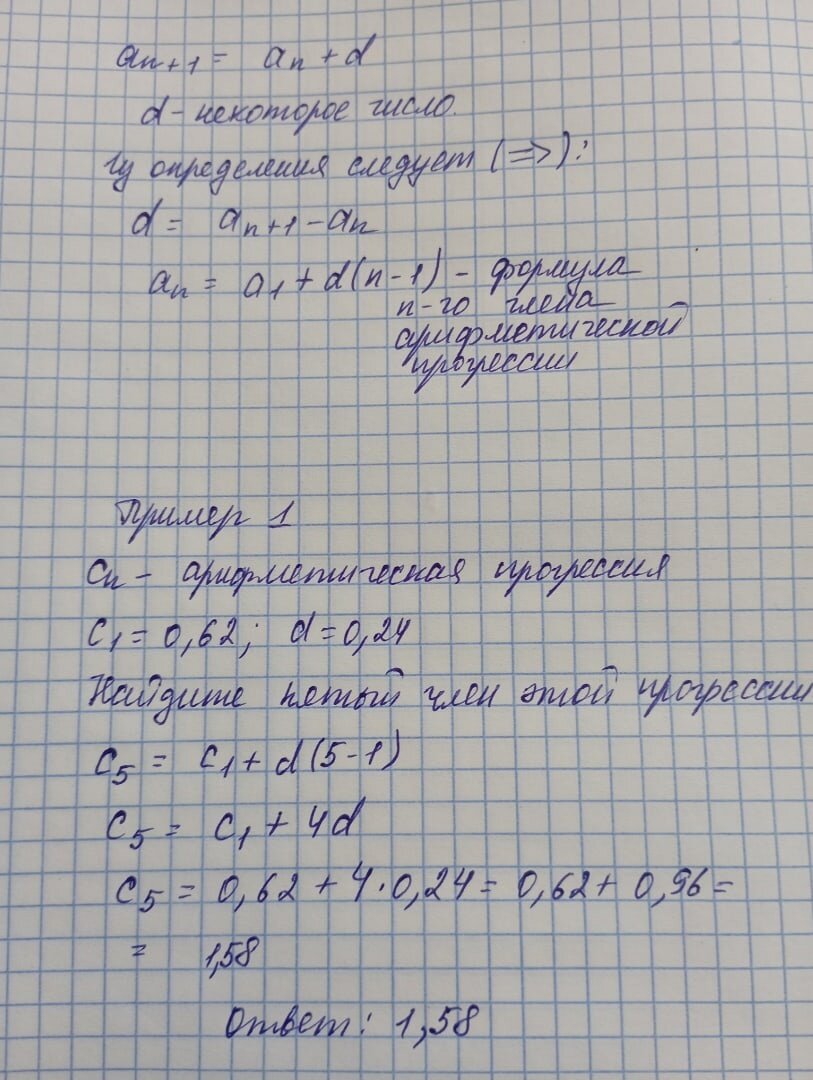 aₙ₊₁ = aₙ + d
d - некоторое число.
Из определения следует (=>):
d = aₙ₊₁ - aₙ
aₙ = a₁ + d(n-1) - формула
n-го члена
арифметической
прогрессии
Пример 1
Cₙ - арифметическая прогрессия
C₁ = 0,62; d = 0,24
Найдите пятый член этой прогрессии
C₅ = C₁ + d(5-1)
C₅ = C₁ + 4d
C₅ = 0,62 + 4·0,24 = 0,62 + 0,96 =
= 1,58
Ответ: 1,58